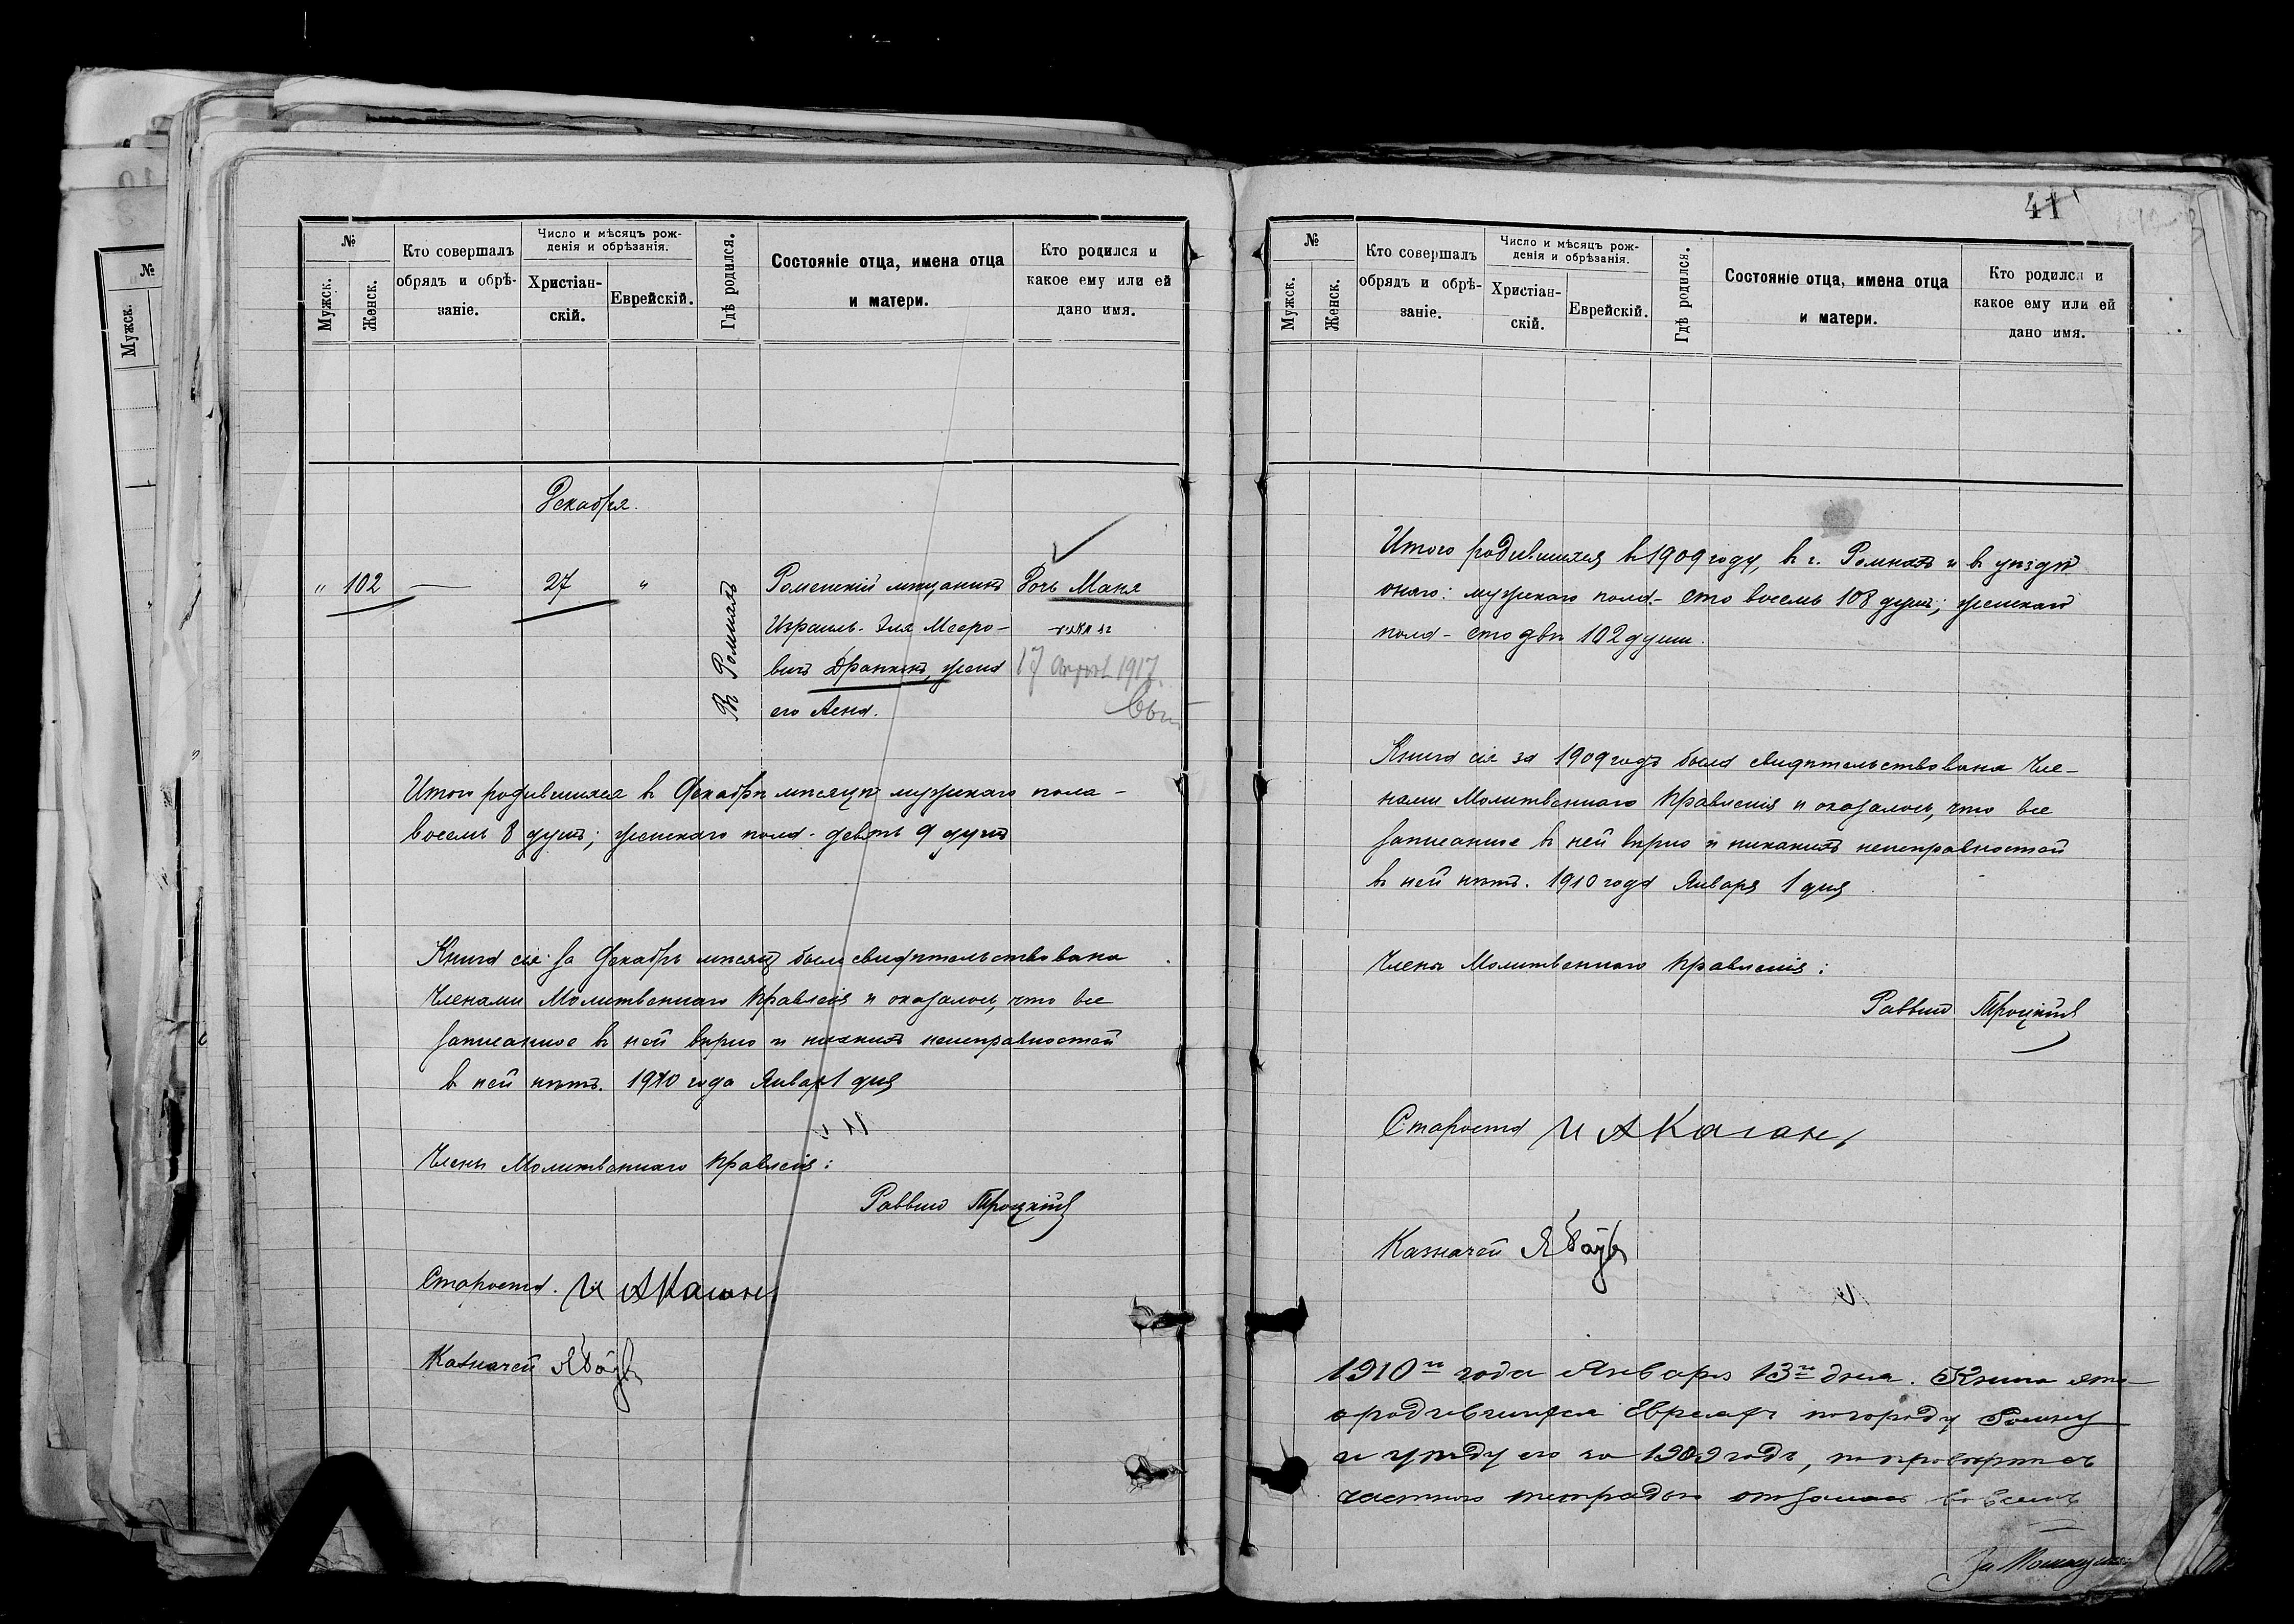 №
Мужск.
№
Мужск.
Женск.
Кто совершалъ
обрядъ и обрѣ-
заніе.
Число и мѣсяцъ рож-
денія и обрѣзанія.
Христіан-
скій.
Еврейскій.
Гдѣ родился.
Состояніе отца, имена отца
и матери.
Кто родился и
какое ему или ей
дано имя.
Декабря.
" 102 — 27 "
Въ Ромнахъ
Роменскій мѣщанинъ
Израиль-Эля Мееро-
вичъ Драпкинъ, жена
его Лена.
Дочь Маня
17 1917.
Итого родившихся въ Декабрѣ мѣсяцѣ мужскаго пола -
восемь 8 душъ; женскаго пола - девять 9 душъ
Книга сія за Декабрь мѣсяцъ была свидѣтельствована
Членами Молитвеннаго Правленія и оказалось, что все
записанное въ ней вѣрно и никакихъ неисправностей
въ ней нѣтъ. 1910 года Января 1 дня
Члены Молитвеннаго Правленія:
Раввинъ Троцкій
Староста. И А Каганъ
Казначей
41
№
Мужск.
Женск.
Кто совершалъ
обрядъ и обрѣ-
заніе.
Число и мѣсяцъ рож-
денія и обрѣзанія.
Христіан-
скій.
Еврейскій.
Гдѣ родился.
Состояніе отца, имена отца
и матери.
Кто родился и
какое ему или ей
дано имя.
Итого родившихся въ 1909 году, въ г. Ромнахъ и въ уѣздѣ
онаго: мужскаго пола - сто восемь 108 душъ; женскаго
пола - сто двѣ 102 души.
Книга сія за 1909 годъ была свидѣтельствована Чле-
нами Молитвеннаго Правленія и оказалось, что все
записанное въ ней вѣрно и никакихъ неисправностей
въ ней нѣтъ. 1910 года Января 1 дня
Члены Молитвеннаго Правленія:
Раввинъ Троцкій
Староста И А Каганъ
Казначей
1910го года Января 13го дня. Книга эта
о родившихся Евреяхъ по городу Ромну
и уѣзду его за 1909 годъ, по провѣркѣ съ
частною тетрадью во всемъ
За